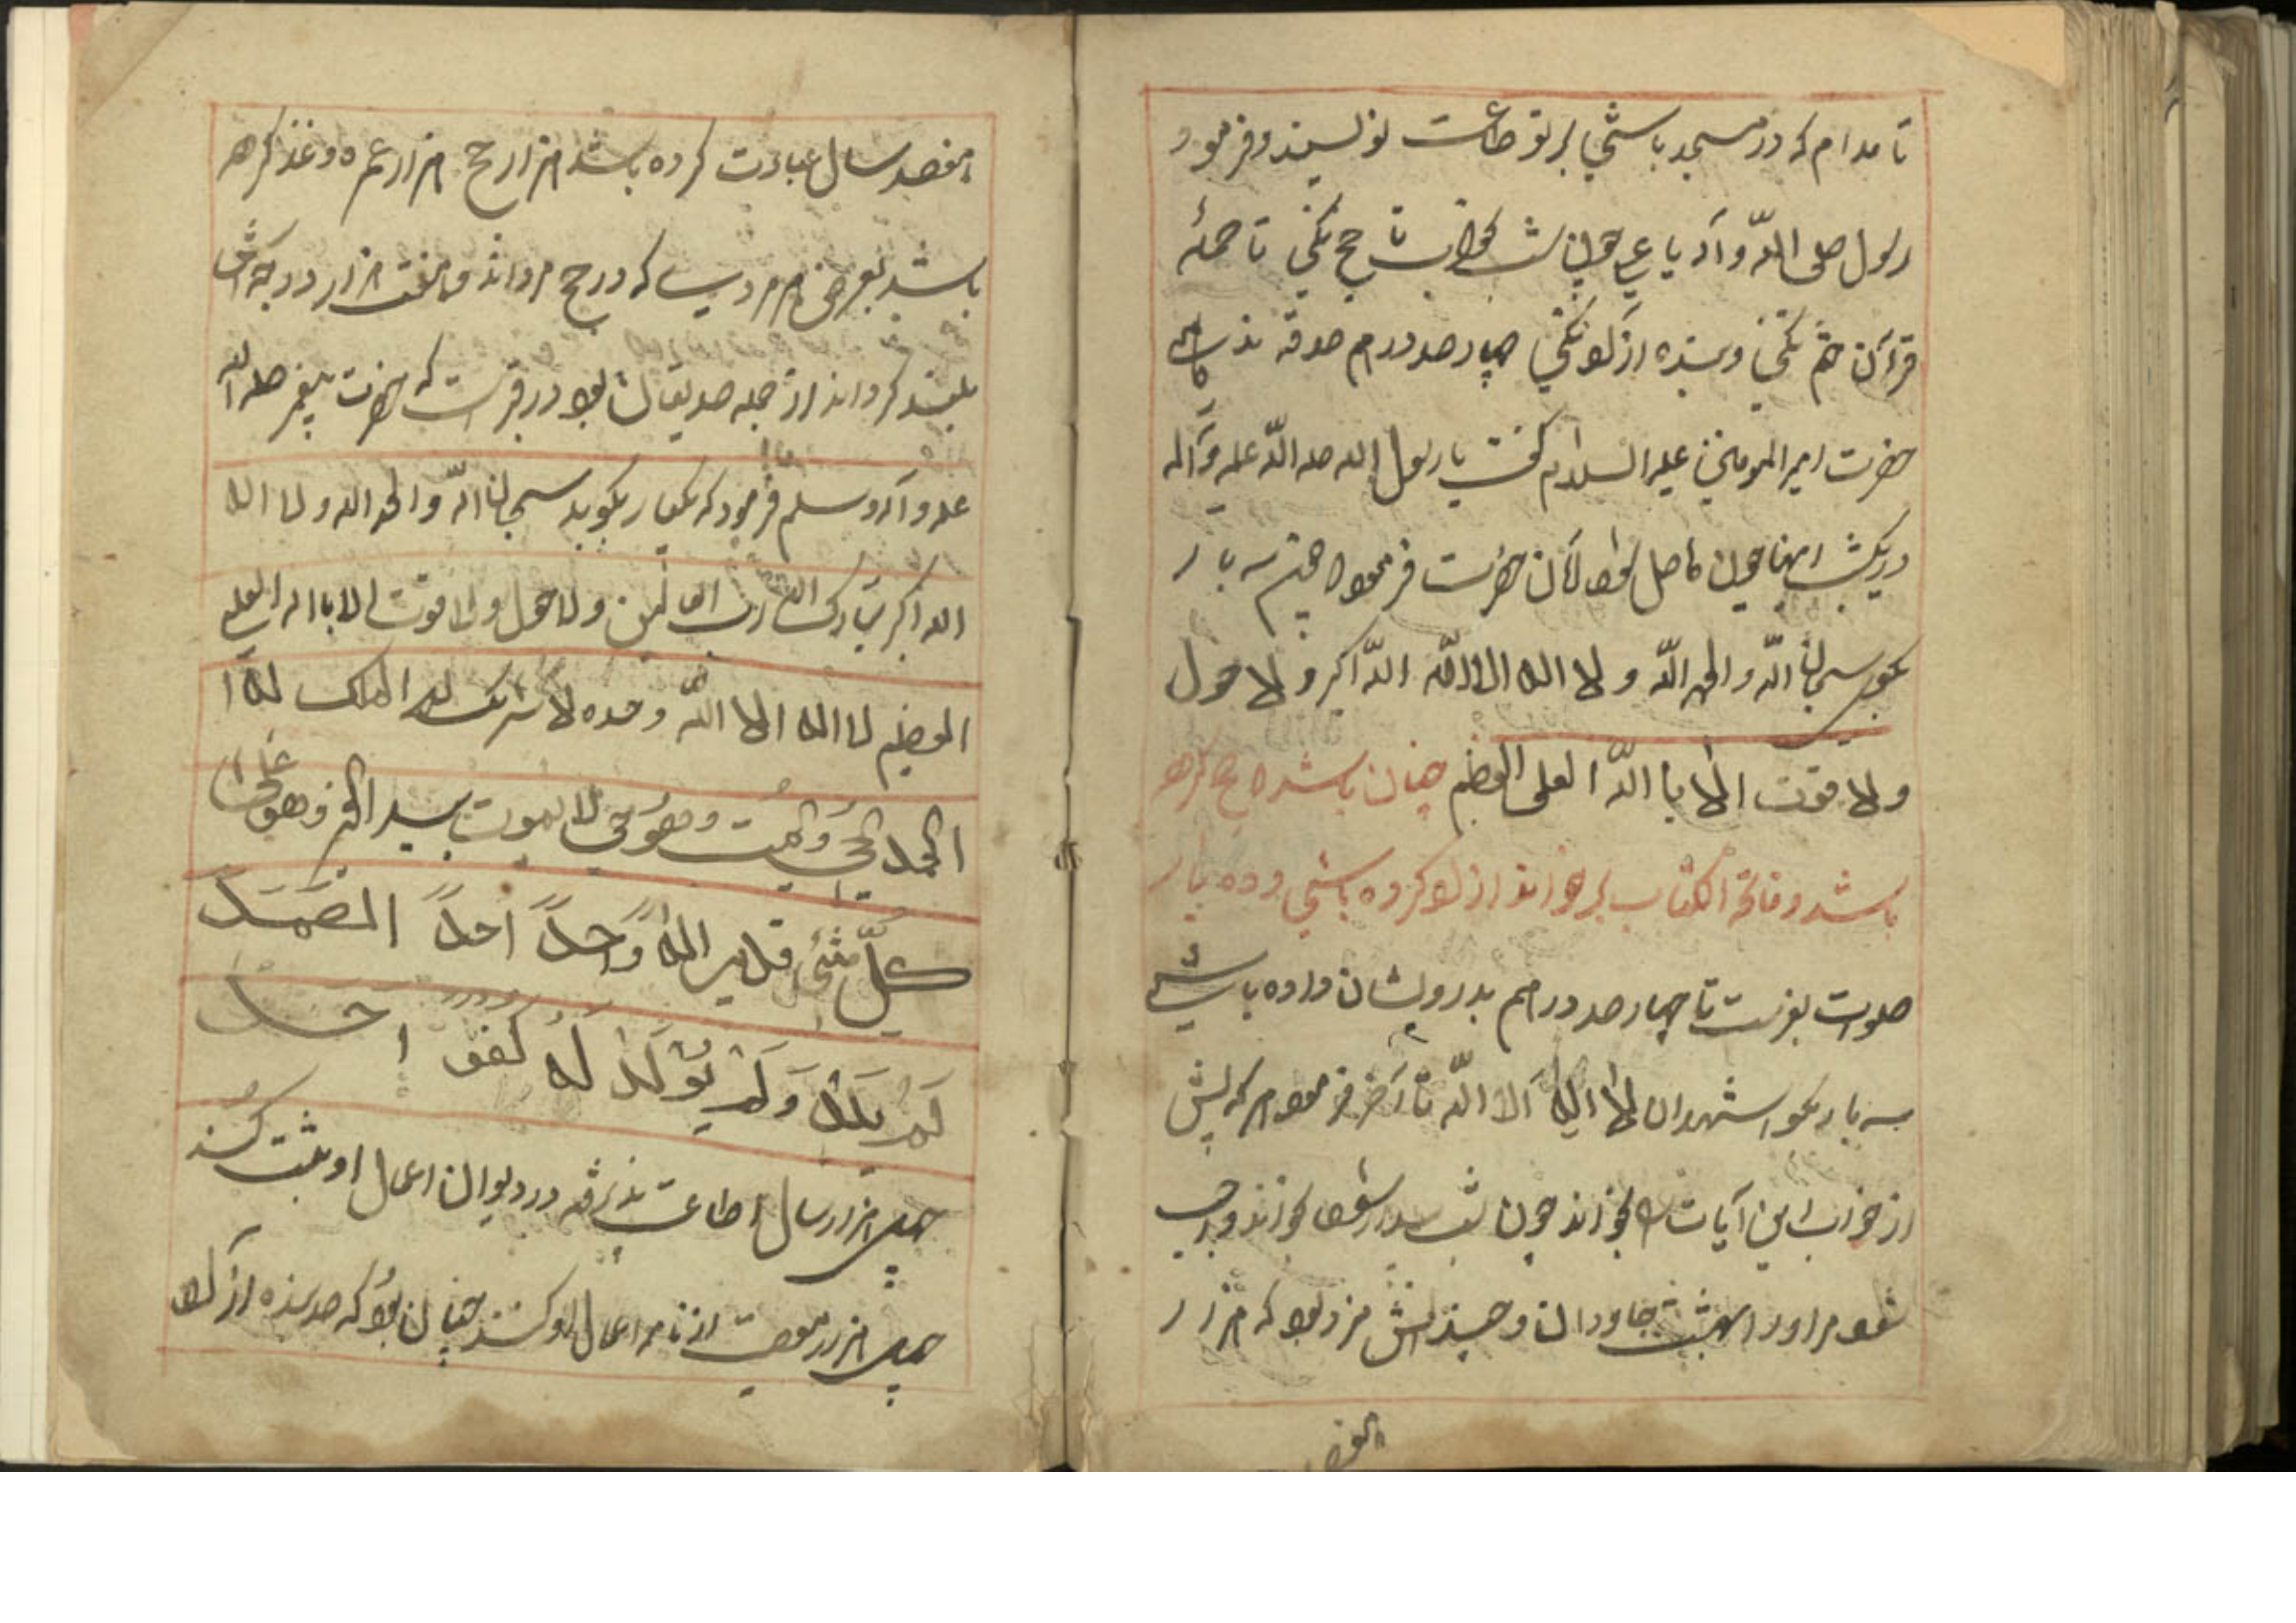 تا مدام که در مسجد باشی بر تو طاعت نویسند و فرمود
رسول صلی اللّه و آله یا علی چون شب بخوابی تا حج نکنی تا جمله
قرآن ختم نکنی و بنده آزاد نکنی چهار صد درم صدقه ندهی
حضرت امیر المومنین علیه السلام گفت یا رسول الله صلی اللّه علیه و آله
در یکشب اینها چون حاصل شود آن حضرت فرمود سه بار
بگو سبحان اللّه و الحمد اللّه و لا اله الا اللّه اللّه اکبر و لا حول
و لا قوت الا با اللّه العلی العظیم چنان باشد که حج کرده
باشد و فاتحة الکتاب بر خواند آزاد کرده باشی و ده بار
صلوات بفرست تا چهار صد درهم بدرویشان داده باشی
سه بار بگو اشهد ان لا اله الا اللّه تا آخر فرمود هر که پیش
از خواب این آیات بخواند چون شب بیدار شود بخواند واجب
شود مر او را بهشت جاودان و چندانش مزد بود که هزار
هفصد سال عبادت کرده باشد هزار حج هزار عمره و غذ کرده
باشد بعوض هر مردیسا که در حج مرداند و هفت هزار درجه اش
بلند گرداند از جمله صدیقان بود در خبرست که حضرت پیغمبر صلی الله
علیه و آله و سلم فرمود که یکبار بگوید سبحان اللّه و الحمد الله و لا اله
الله اکبر تبارک الله رب العالمین و لا حول و لا قوت الا با الله العلی
العظیم لا اله الا اللّه وحده لا شریک له له الملک له ا
الحمد یحیی و یمیت و هو حی لا یموت بید الخیر و هو علی
کلّ شیء قدیر الها وّاحداً احداً الصمد
لَمْ یلد وَلَمْ یُولَد لَهُ کفو احد
چهل هزار سال اطاعت پذیرفته در دیوان اعمال او ثبت کنند
چهل هزار معصیت از نامه اعمال او کنند چنان بود که صد بنده آزاد